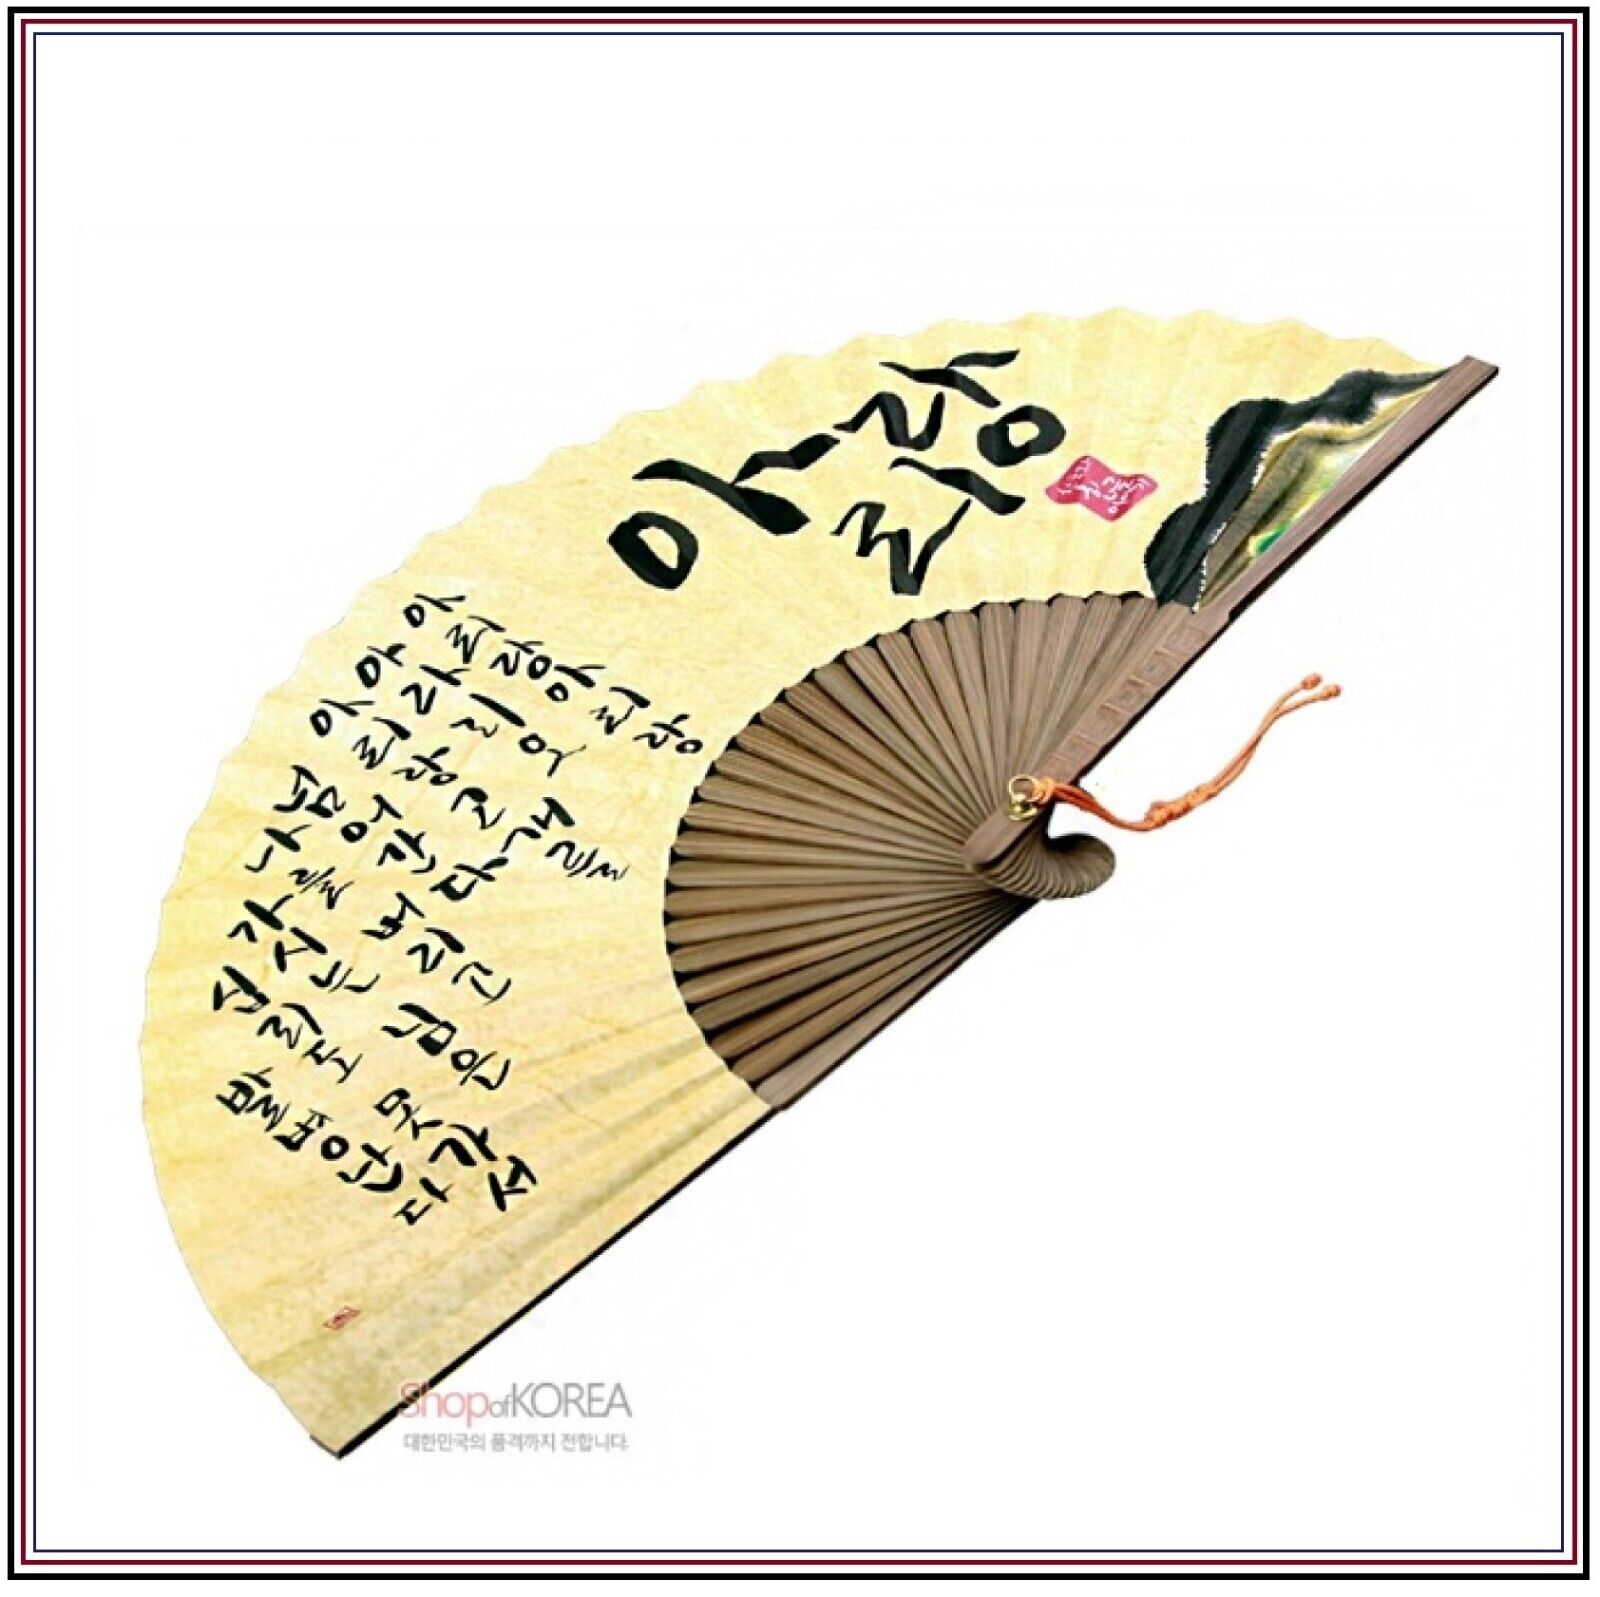 아리랑
아리랑 아리랑
아라리요
아리랑 고개를
넘어간다
나를 버리고
가시는 님은
십리도 못가서
발병난다
Shop of KOREA
대한민국의 품격까지 전합니다.